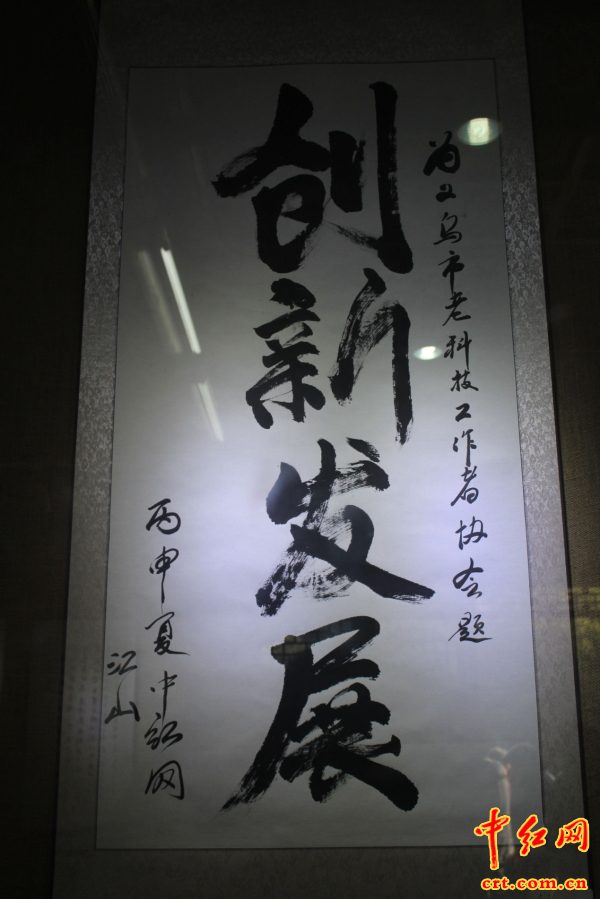 为义乌市老科技工作者协会题
创新发展
丙申夏中红网
江山
中红网
crt.com.cn